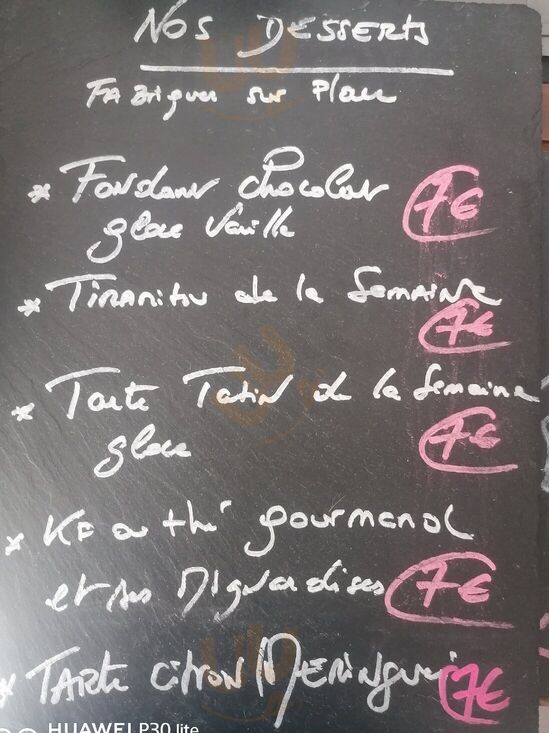 NOS DESSERTS
FABRIQUER SUR PLACE
* FONDANT chocolat
7€
glace Vanille
* TIRAMISU de la SEMAINE
7€
* Tarte TATIN de la SEMAINE
glace
7€
* KF ou thé gourmand
et ses Mignardises
7€
* TARTE CITRON MERINGUÉE
7€
HUAWEI P30 lite